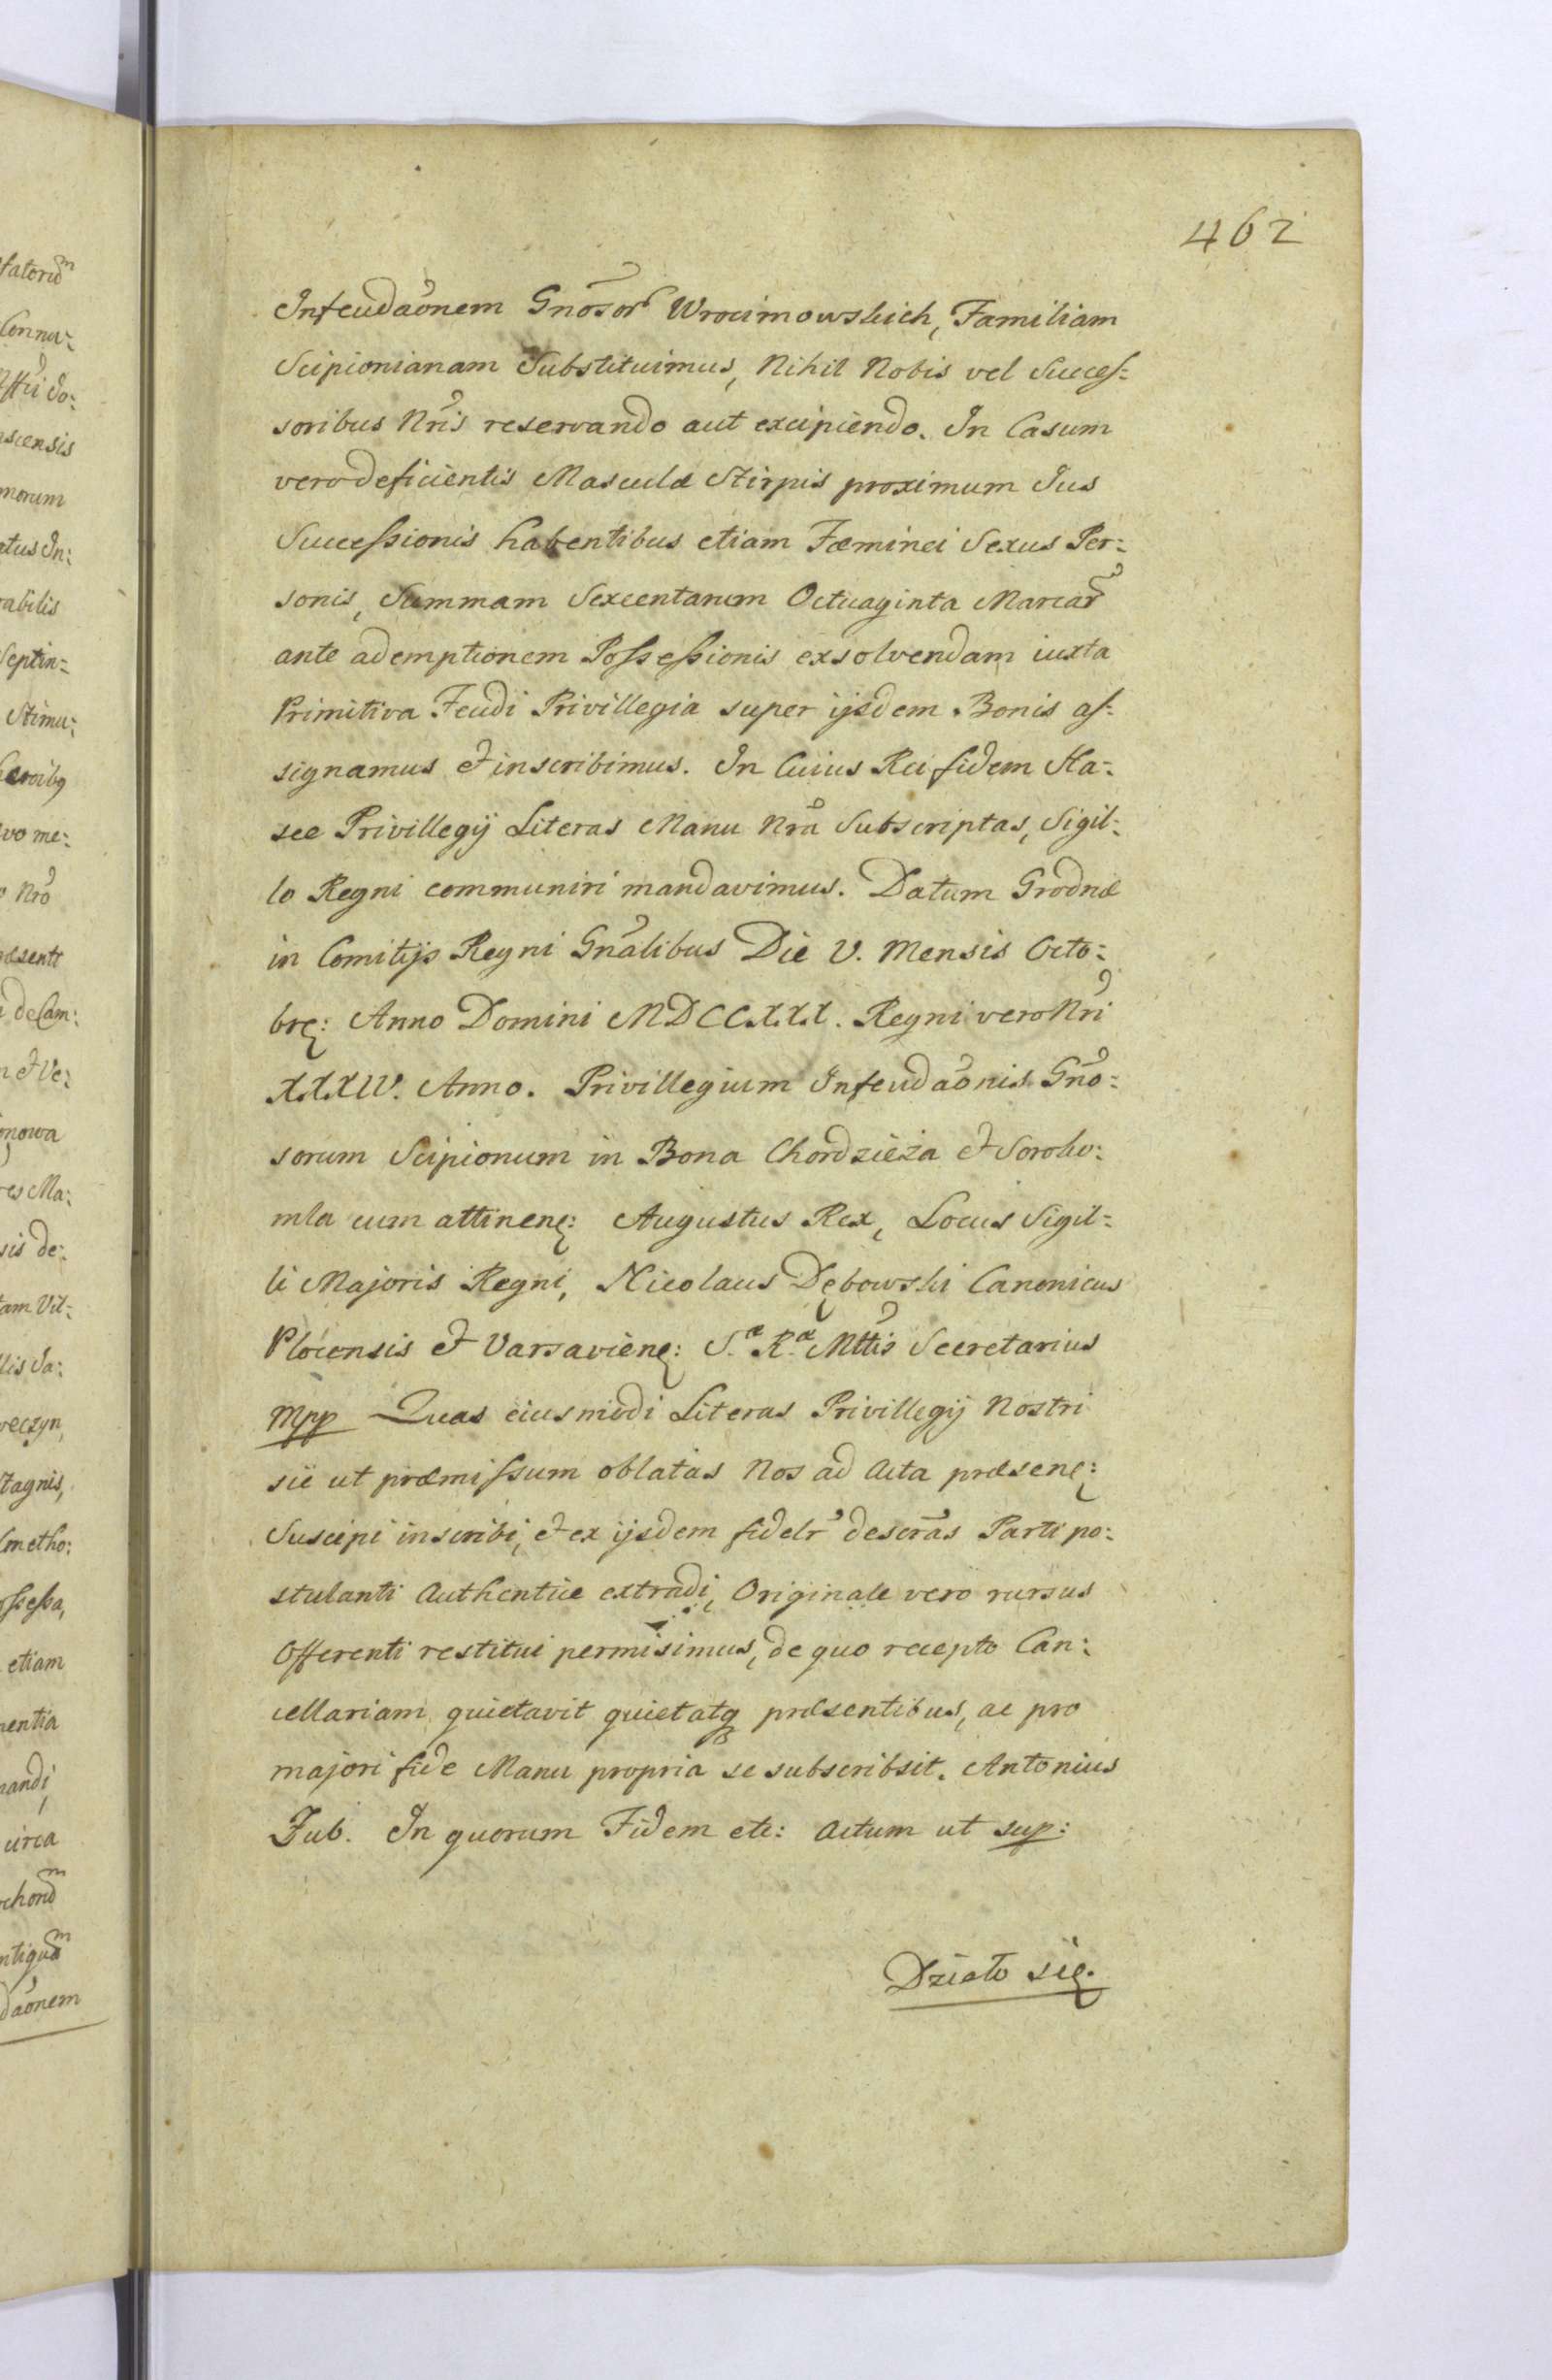 462
Infeudaõnem Gnõsor Wrocimowskich, Familiam
Scipionianam Substituimus, Nihil Nobis vel Succes=
soribus Nris reservando aut excipiendo. In Casum
vero deficientis Masculæ Stirpis proximum Jus
Successionis habentibus etiam Fæminei Sexus Per=
sonis, Summam Sexcentarum Octuaginta Marcar
ante ademptionem Possessionis exsolvendam iuxta
Primitiva Feudi Privillegia super ijsdem Bonis as=
signamus et inscribimus. In Cuius Rei fidem Ha=
sce Privillegij Literas Manu Nra Subscriptas, Sigil=
lo Regni communiri mandavimus. Datum Grodnæ
in Comitijs Regni Gnalibus Die V. Mensis Octo=
brę: Anno Domini MDCCXXX. Regni vero Nri
XXXIV. Anno. Privillegium Infeudaõnis Gno=
sorum Scipionum in Bona Chordzieża et Soroko=
mla cum attinenę: Augustus Rex, Locus Sigil=
li Majoris Regni, Nicolaus Dębowski Canonicus
Plocensis et Varsavienę: S.æ R.æ Mttis Secretarius
mpp Quas eiusmodi Literas Privillegij Nostri
sic ut præmissum oblatas Nos ad Acta præsenę:
Suscipi inscribi, et ex ijsdem fidelr descras Parti po=
stulanti Authentice extradi, Originale vero rursus
Offerenti restitui permisimus, de quo recepto Can=
cellariam quietavit quietatq præsentibus, ac pro
majori fide Manu propria se subscribsit. Antonius
Zub. In quorum Fidem etc: Actum ut sup:
Działo się.
fatorum
Conna=
scensis
morum
atus In=
rabilis
Septin=
Stimu=
vo me=
Nro
æsenti
de Cam=
et Ve=
onowa
res Ma=
sis de=
tam Vil=
llis Sa=
weczyn,
tagnis,
metho=
ossessa,
etiam
nentia
nandi,
circa
chonũ
ntiquã
daõnem